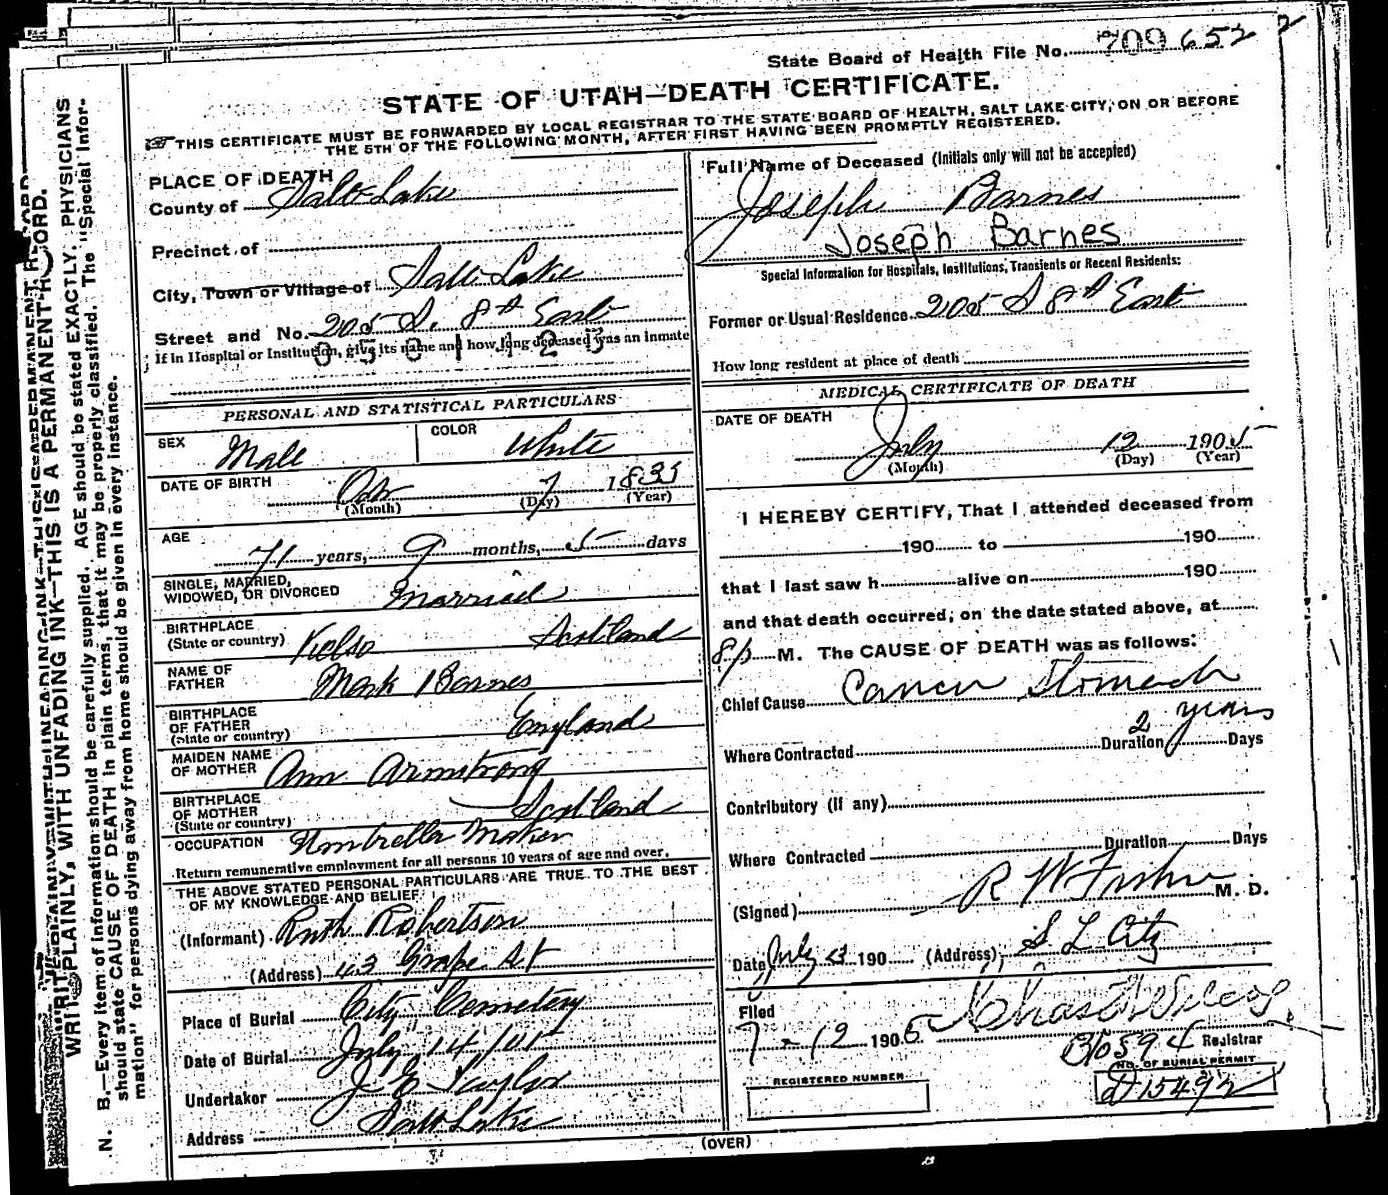 State Board of Health File No. 709 652
STATE OF UTAH—DEATH CERTIFICATE.
THIS CERTIFICATE MUST BE FORWARDED BY LOCAL REGISTRAR TO THE STATE BOARD OF HEALTH, SALT LAKE CITY, ON OR BEFORE
THE 5TH OF THE FOLLOWING MONTH, AFTER FIRST HAVING BEEN PROMPTLY REGISTERED.
PLACE OF DEATH
County of Salt Lake
Precinct of
City, Town or Village of Salt Lake
Street and No. 205 S. 8th East
If in Hospital or Institution, give its name and how long deceased was an inmate
Full Name of Deceased (Initials only will not be accepted)
Joseph Barnes
Joseph Barnes
Special Information for Hospitals, Institutions, Transients or Recent Residents:
Former or Usual Residence 205 S 8th East
How long resident at place of death
PERSONAL AND STATISTICAL PARTICULARS
SEX Male
COLOR White
DATE OF BIRTH 7 1833
(Month) (Day) (Year)
AGE 71 years, 9 months, 5 days
SINGLE, MARRIED,
WIDOWED, OR DIVORCED Married
BIRTHPLACE
(State or country) Kelso Scotland
NAME OF
FATHER Mark Barnes
BIRTHPLACE
OF FATHER
(State or country) England
MAIDEN NAME
OF MOTHER Ann Armstrong
BIRTHPLACE
OF MOTHER
(State or country) Scotland
OCCUPATION Umbrella Maker
Return remunerative employment for all persons 10 years of age and over.
THE ABOVE STATED PERSONAL PARTICULARS ARE TRUE TO THE BEST
OF MY KNOWLEDGE AND BELIEF
(Informant) Ruth Robertson
(Address) 43 Grape St
Place of Burial City Cemetery
Date of Burial July 14
Undertaker J E Taylor
Address Salt Lake
MEDICAL CERTIFICATE OF DEATH
DATE OF DEATH
July 12 1905
(Month) (Day) (Year)
I HEREBY CERTIFY, That I attended deceased from
190 to 190
that I last saw h alive on 190
and that death occurred, on the date stated above, at
8 p M. The CAUSE OF DEATH was as follows:
Chief Cause Cancer Stomach
2 years
Where Contracted Duration Days
Contributory (If any)
Where Contracted Duration Days
(Signed) R W Fisher M. D.
Date July 13 190 (Address) S L City
Filed
7-12 1905 Chas Wilcox
Registrar
B10594
NO. OF BURIAL PERMIT
D15492
REGISTERED NUMBER
(OVER)
WRITE PLAINLY, WITH UNFADING INK—THIS IS A PERMANENT RECORD.
N. B.—Every item of information should be carefully supplied. AGE should be stated EXACTLY. PHYSICIANS
should state CAUSE OF DEATH in plain terms, that it may be properly classified. The "Special Infor-
mation" for persons dying away from home should be given in every instance.